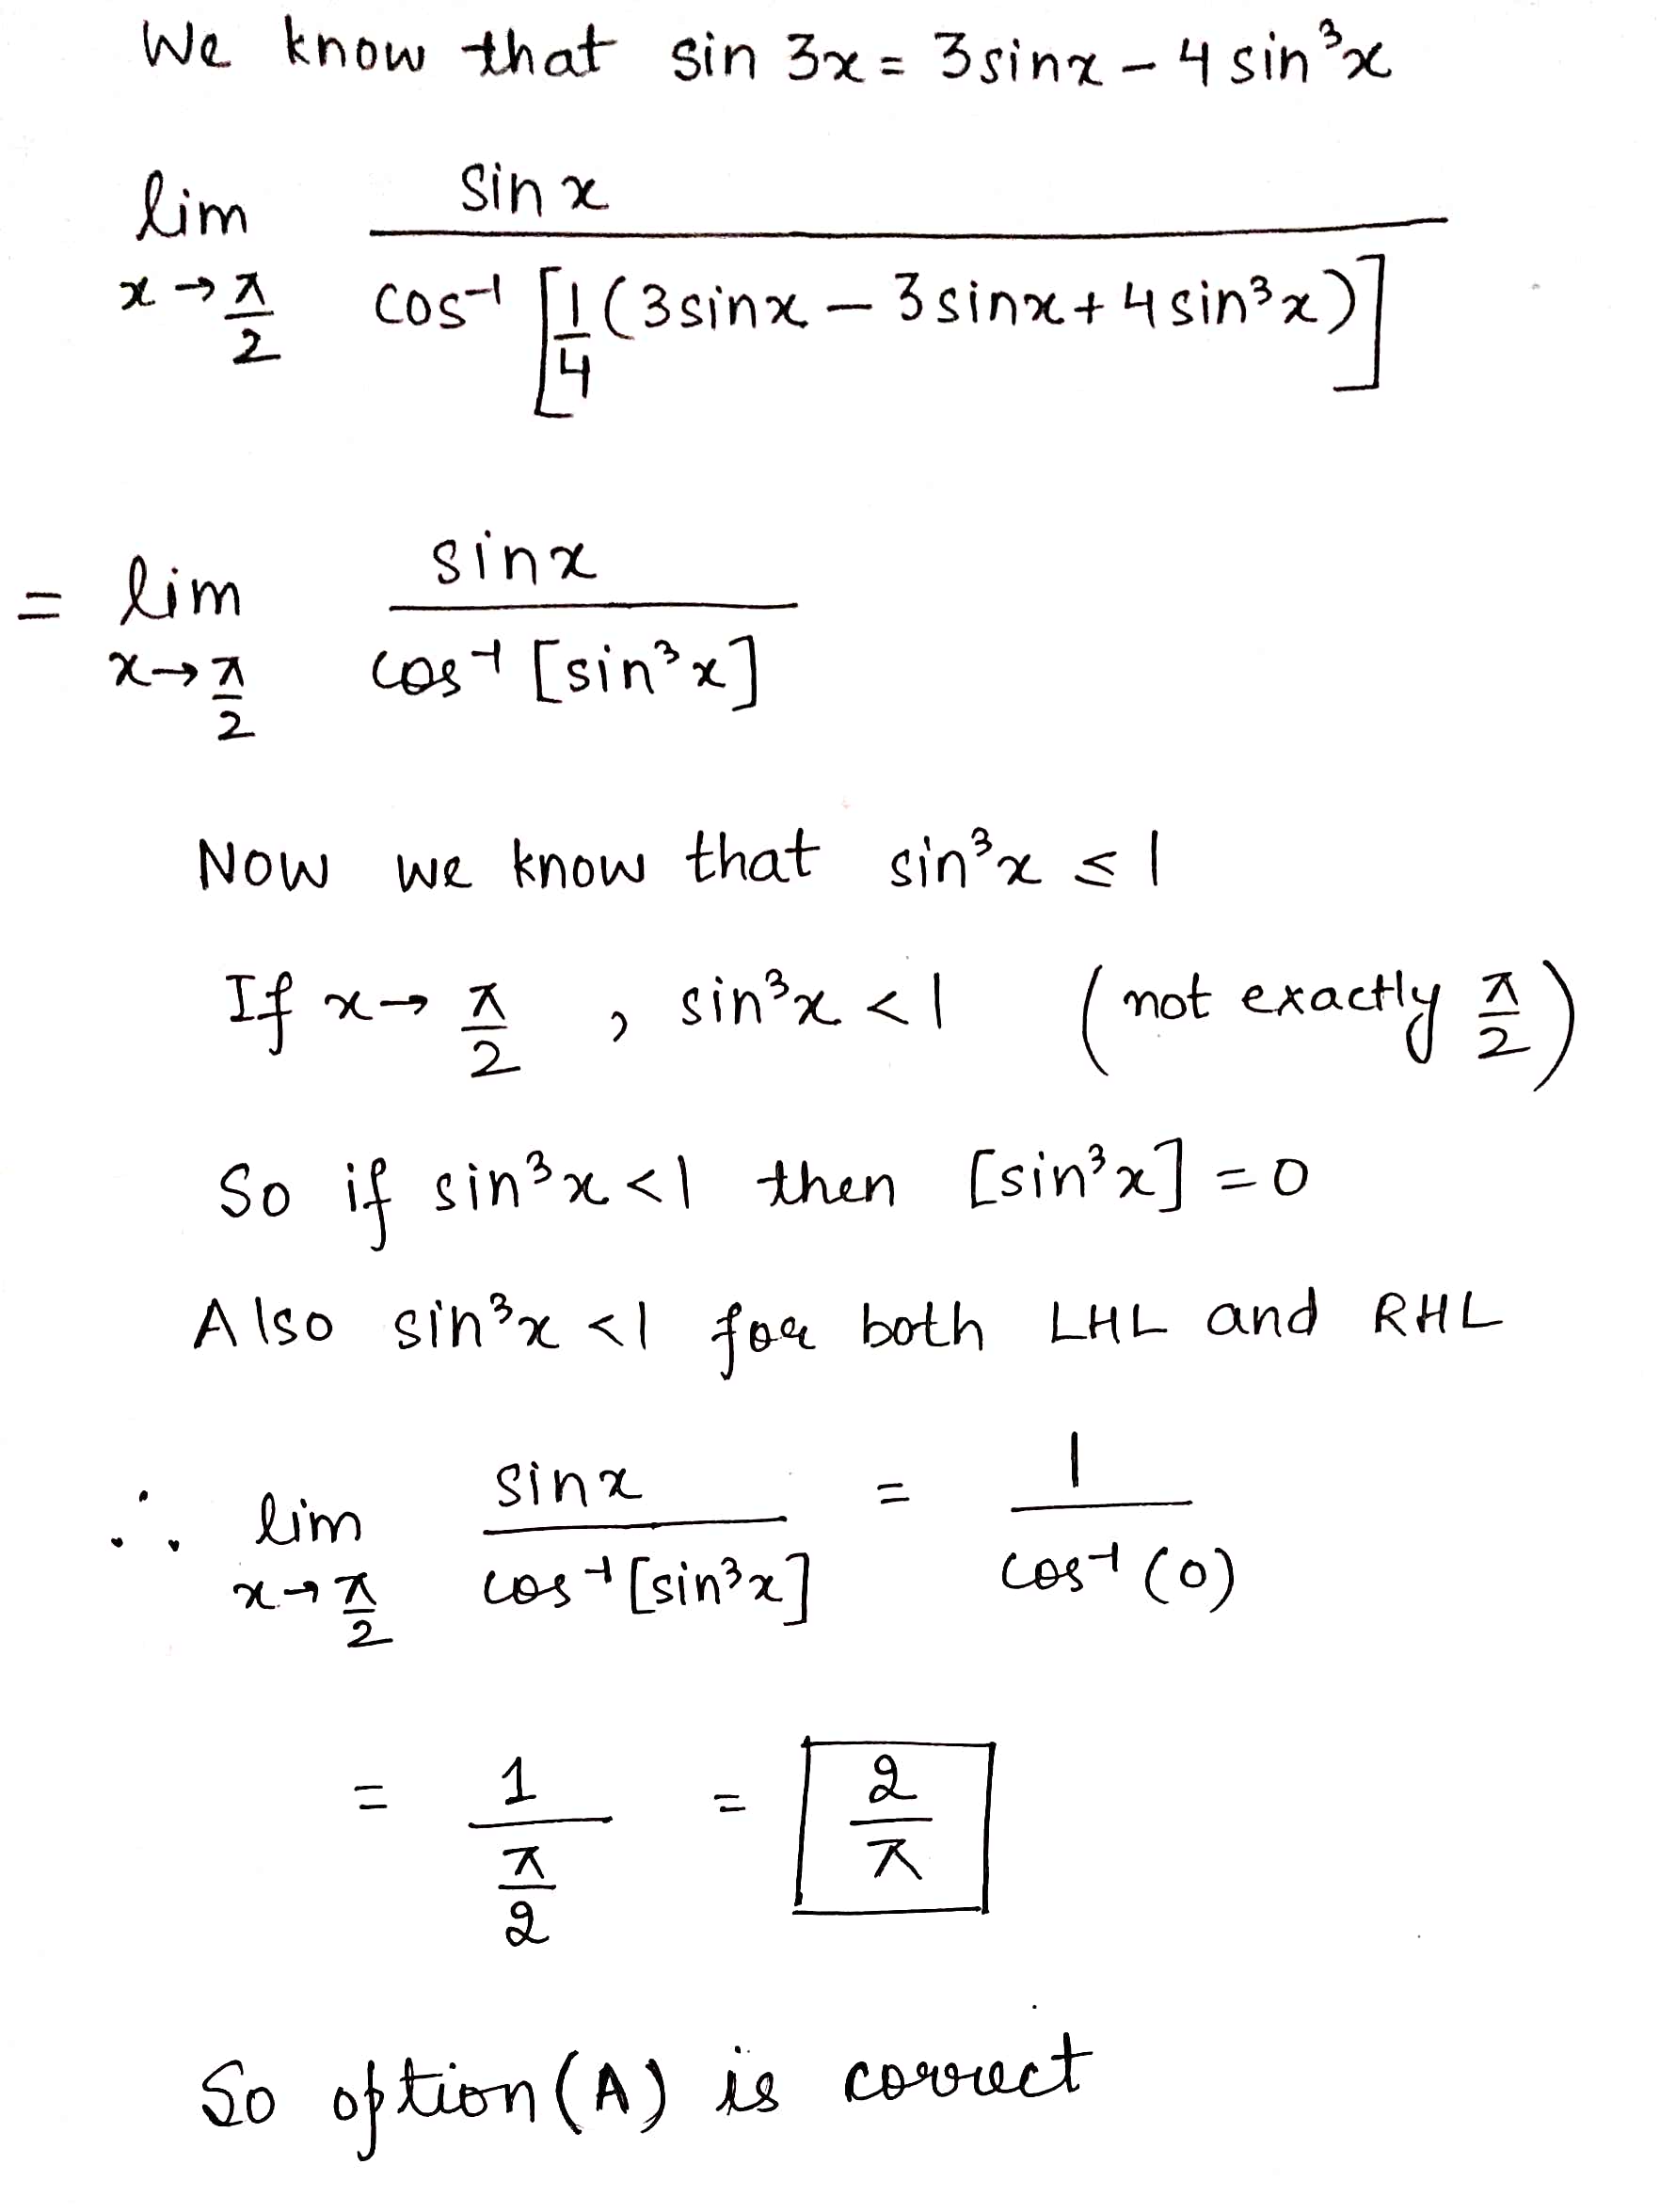 We know that sin 3x = 3sinx - 4 sin³x
lim x→π/2 sin x / cos⁻¹ [1/4 (3sinx - 3sinx + 4sin³x)]
= lim x→π/2 sinx / cos⁻¹ [sin³x]
Now we know that sin³x ≤ 1
If x→ π/2 , sin³x < 1 (not exactly π/2)
So if sin³x < 1 then [sin³x] = 0
Also sin³x < 1 for both LHL and RHL
∴ lim x→π/2 sinx / cos⁻¹ [sin³x] = 1 / cos⁻¹ (0)
= 1 / π/2 = 2/π
So option (A) is correct